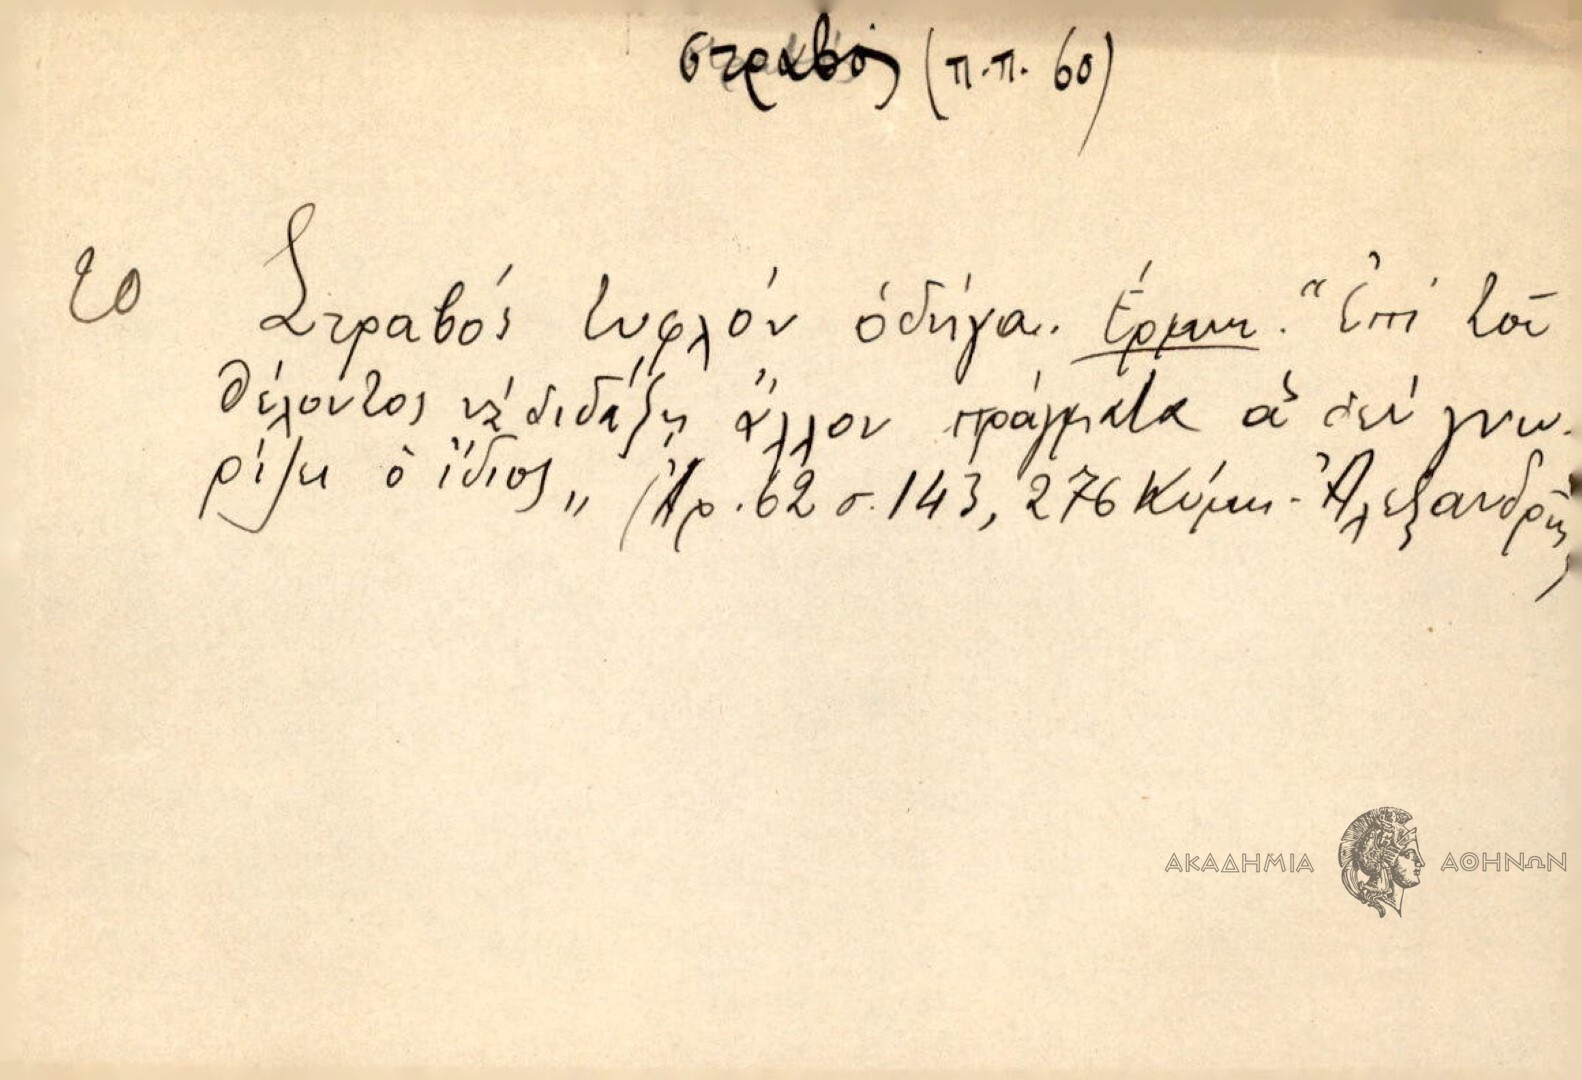 στραβός (π.π. 60)
Στραβός τυφλόν ὁδήγα. Ἑρμην. "Ἐπί τοῦ
θέλοντος νά διδάξῃ ἄλλον πράγματα ἅ δέν γνω-
ρίζει ὁ ἴδιος„ (Ἀρ. 62 σ. 143, 276 Κύμη - Ἀλεξανδρῆς)
ΑΚΑΔΗΜΙΑ ΑΘΗΝΩΝ